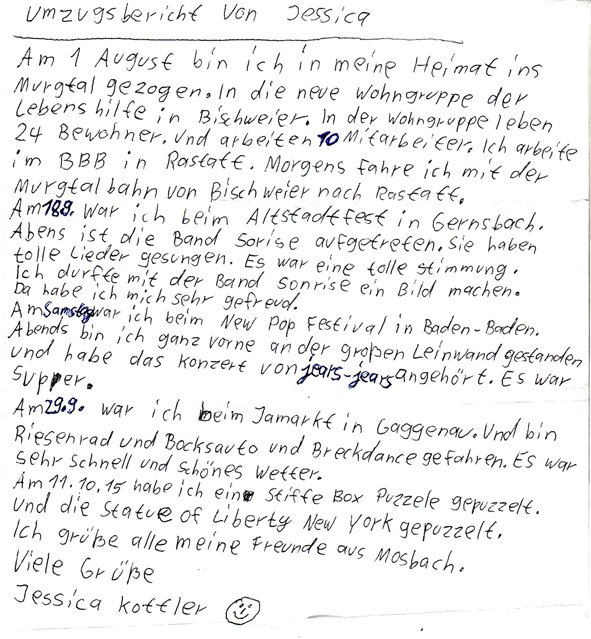 Umzugsbericht von Jessica
Am 1 August bin ich in meine Heimat ins
Murgtal gezogen. In die neue Wohngruppe der
Lebenshilfe in Bischweier. In der Wohngruppe leben
24 Bewohner. Und arbeiten 10 Mitarbeiter. Ich arbeite
im BBB in Rastatt. Morgens fahre ich mit der
Murgtalbahn von Bischweier nach Rastatt.
Am 18.9. war ich beim Altstadtfest in Gernsbach.
Abens ist die Band Sorise aufgetreten. Sie haben
tolle Lieder gesungen. Es war eine tolle Stimmung.
Ich durfte mit der Band Sonrise ein Bild machen.
Da habe ich mich sehr gefreud.
Am Samstag war ich beim New Pop Festival in Baden-Baden.
Abends bin ich ganz vorne an der großen Leinwand gestanden
und habe das Konzert von jears-jears angehört. Es war
supper.
Am 29.9. war ich beim Jamarkt in Gaggenau. Und bin
Riesenrad und Bocksauto und Breckdance gefahren. Es war
sehr schnell und schönes Wetter.
Am 11.10.15 habe ich eine Stiffe Box Puzzele gepuzzelt.
Und die Statue of Liberty New York gepuzzelt.
Ich grüße alle meine Freunde aus Mosbach.
Viele Grüße
Jessica Kottler